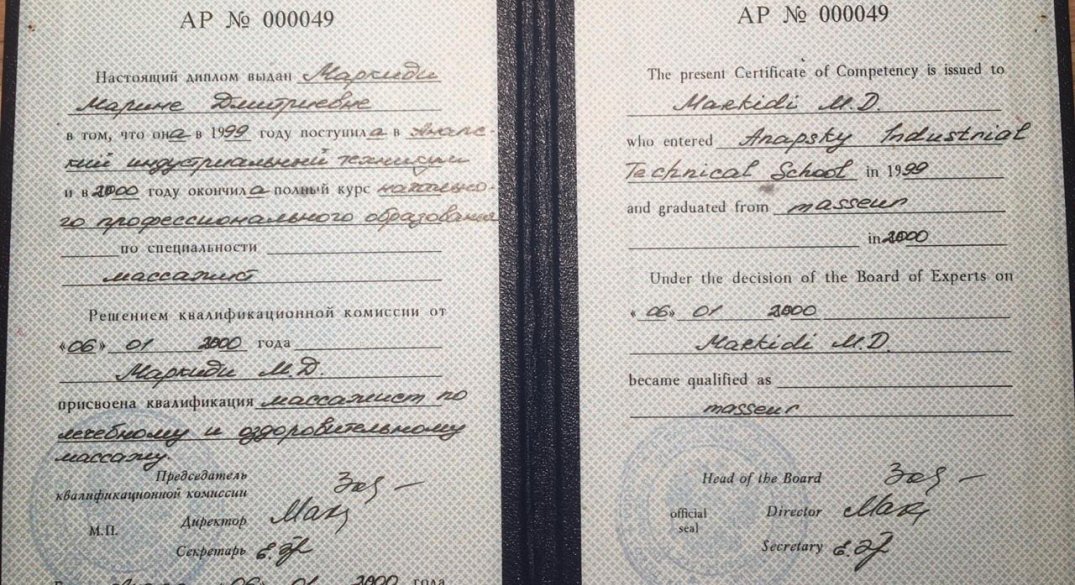 АР № 000049
Настоящий диплом выдан Маркиди
Марине Дмитриевне
в том, что она в 1999 году поступила в Анапс-
кий индустриальный техникум
и в 2000 году окончила полный курс начально-
го профессионального образования
по специальности
массажист
Решением квалификационной комиссии от
«06» 01 2000 года
Маркиди М.Д.
присвоена квалификация массажист по
лечебному и оздоровительному
массажу.
Председатель
квалификационной комиссии
М.П. Директор
Секретарь
«06» 01 2000 года
АР № 000049
The present Certificate of Competency is issued to
Markidi M.D.
who entered Anapsky Industrial
Technical School in 1999
and graduated from masseur
in 2000
Under the decision of the Board of Experts on
«06» 01 2000
Markidi M.D.
became qualified as
masseur
Head of the Board
official
seal
Director
Secretary